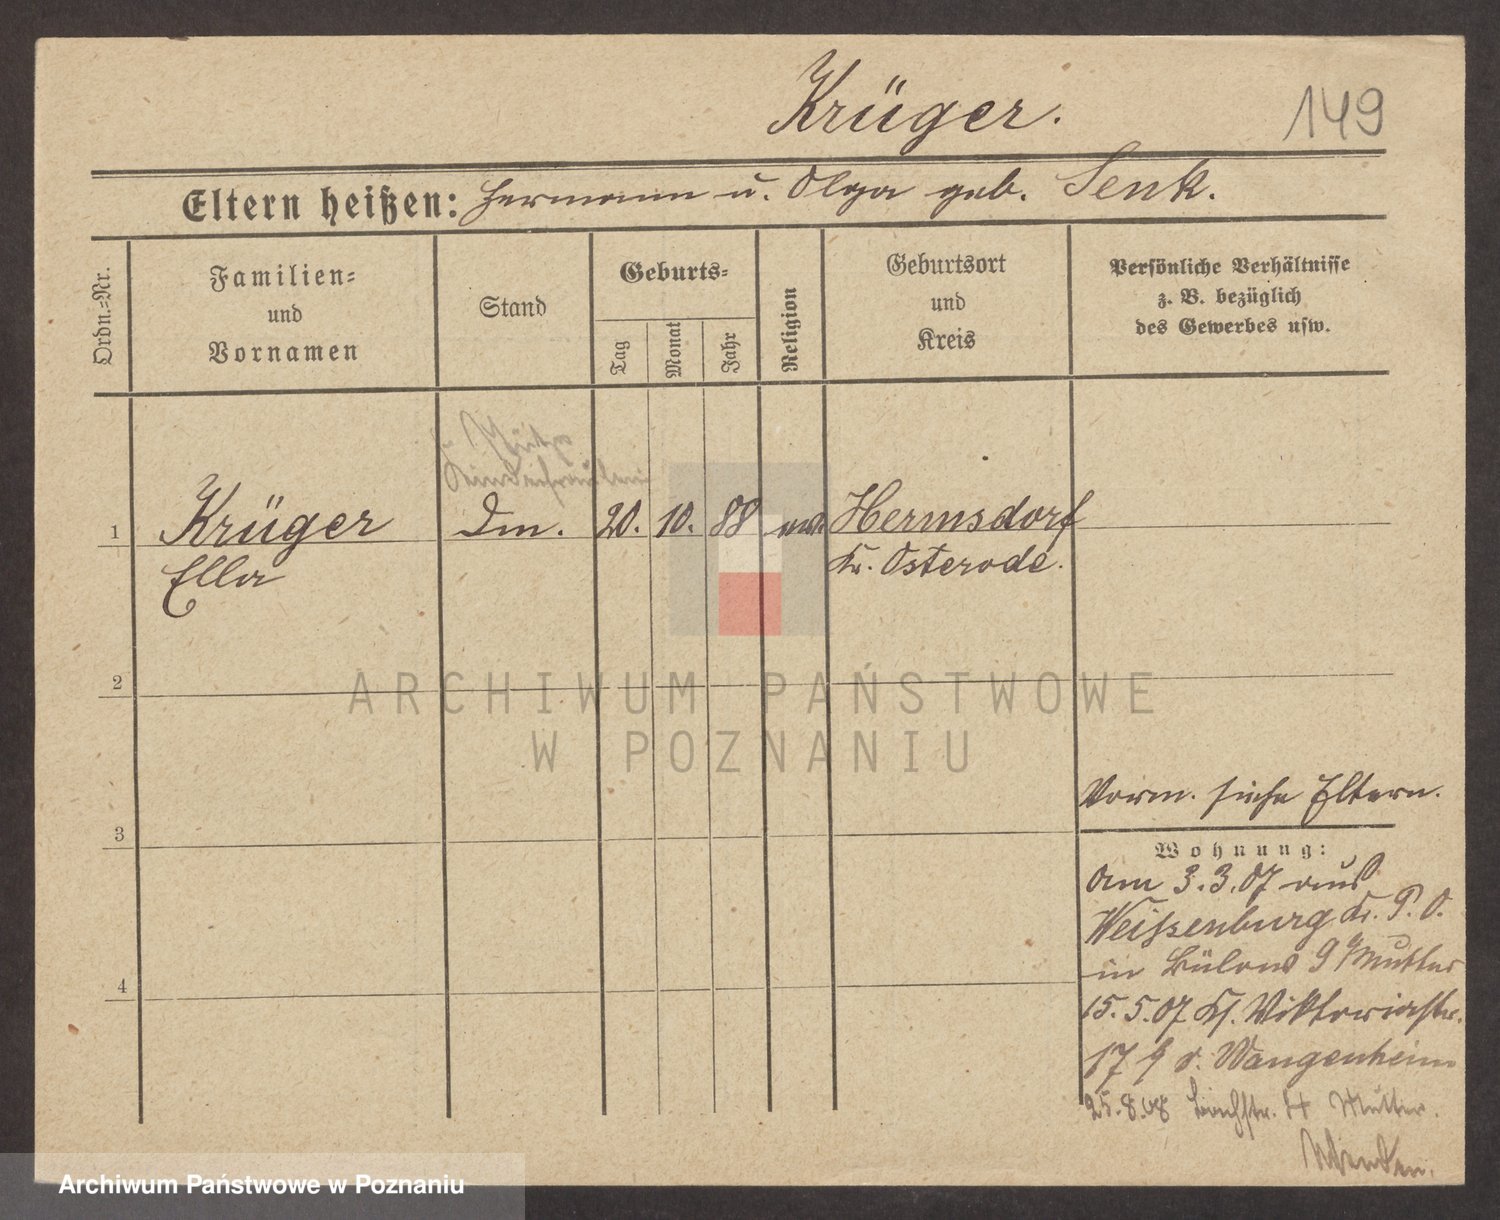 Krüger.
149
Eltern heißen: Hermann u. Olga geb. Senk.
Ordn.=Nr.
Familien=
und
Vornamen
Stand
Geburts=
Tag
Monat
Jahr
Religion
Geburtsort
und
Kreis
Persönliche Verhältnisse
z. B. bezüglich
des Gewerbes usw.
Kinderfräulein
1 Krüger
Ella
20. 10. 88
Hermsdorf
Kr. Osterode.
2
ARCHIWUM PAŃSTWOWE
W POZNANIU
Vorm. siehe Eltern.
3
Wohnung:
am 3.3.07 aus
Weißenburg Kr. P. O.
in Bülow 9 Mutter
15.5.07 Viktoriastr.
17 v. Wangenheim
4
25.8.08 Mutter.
Archiwum Państwowe w Poznaniu